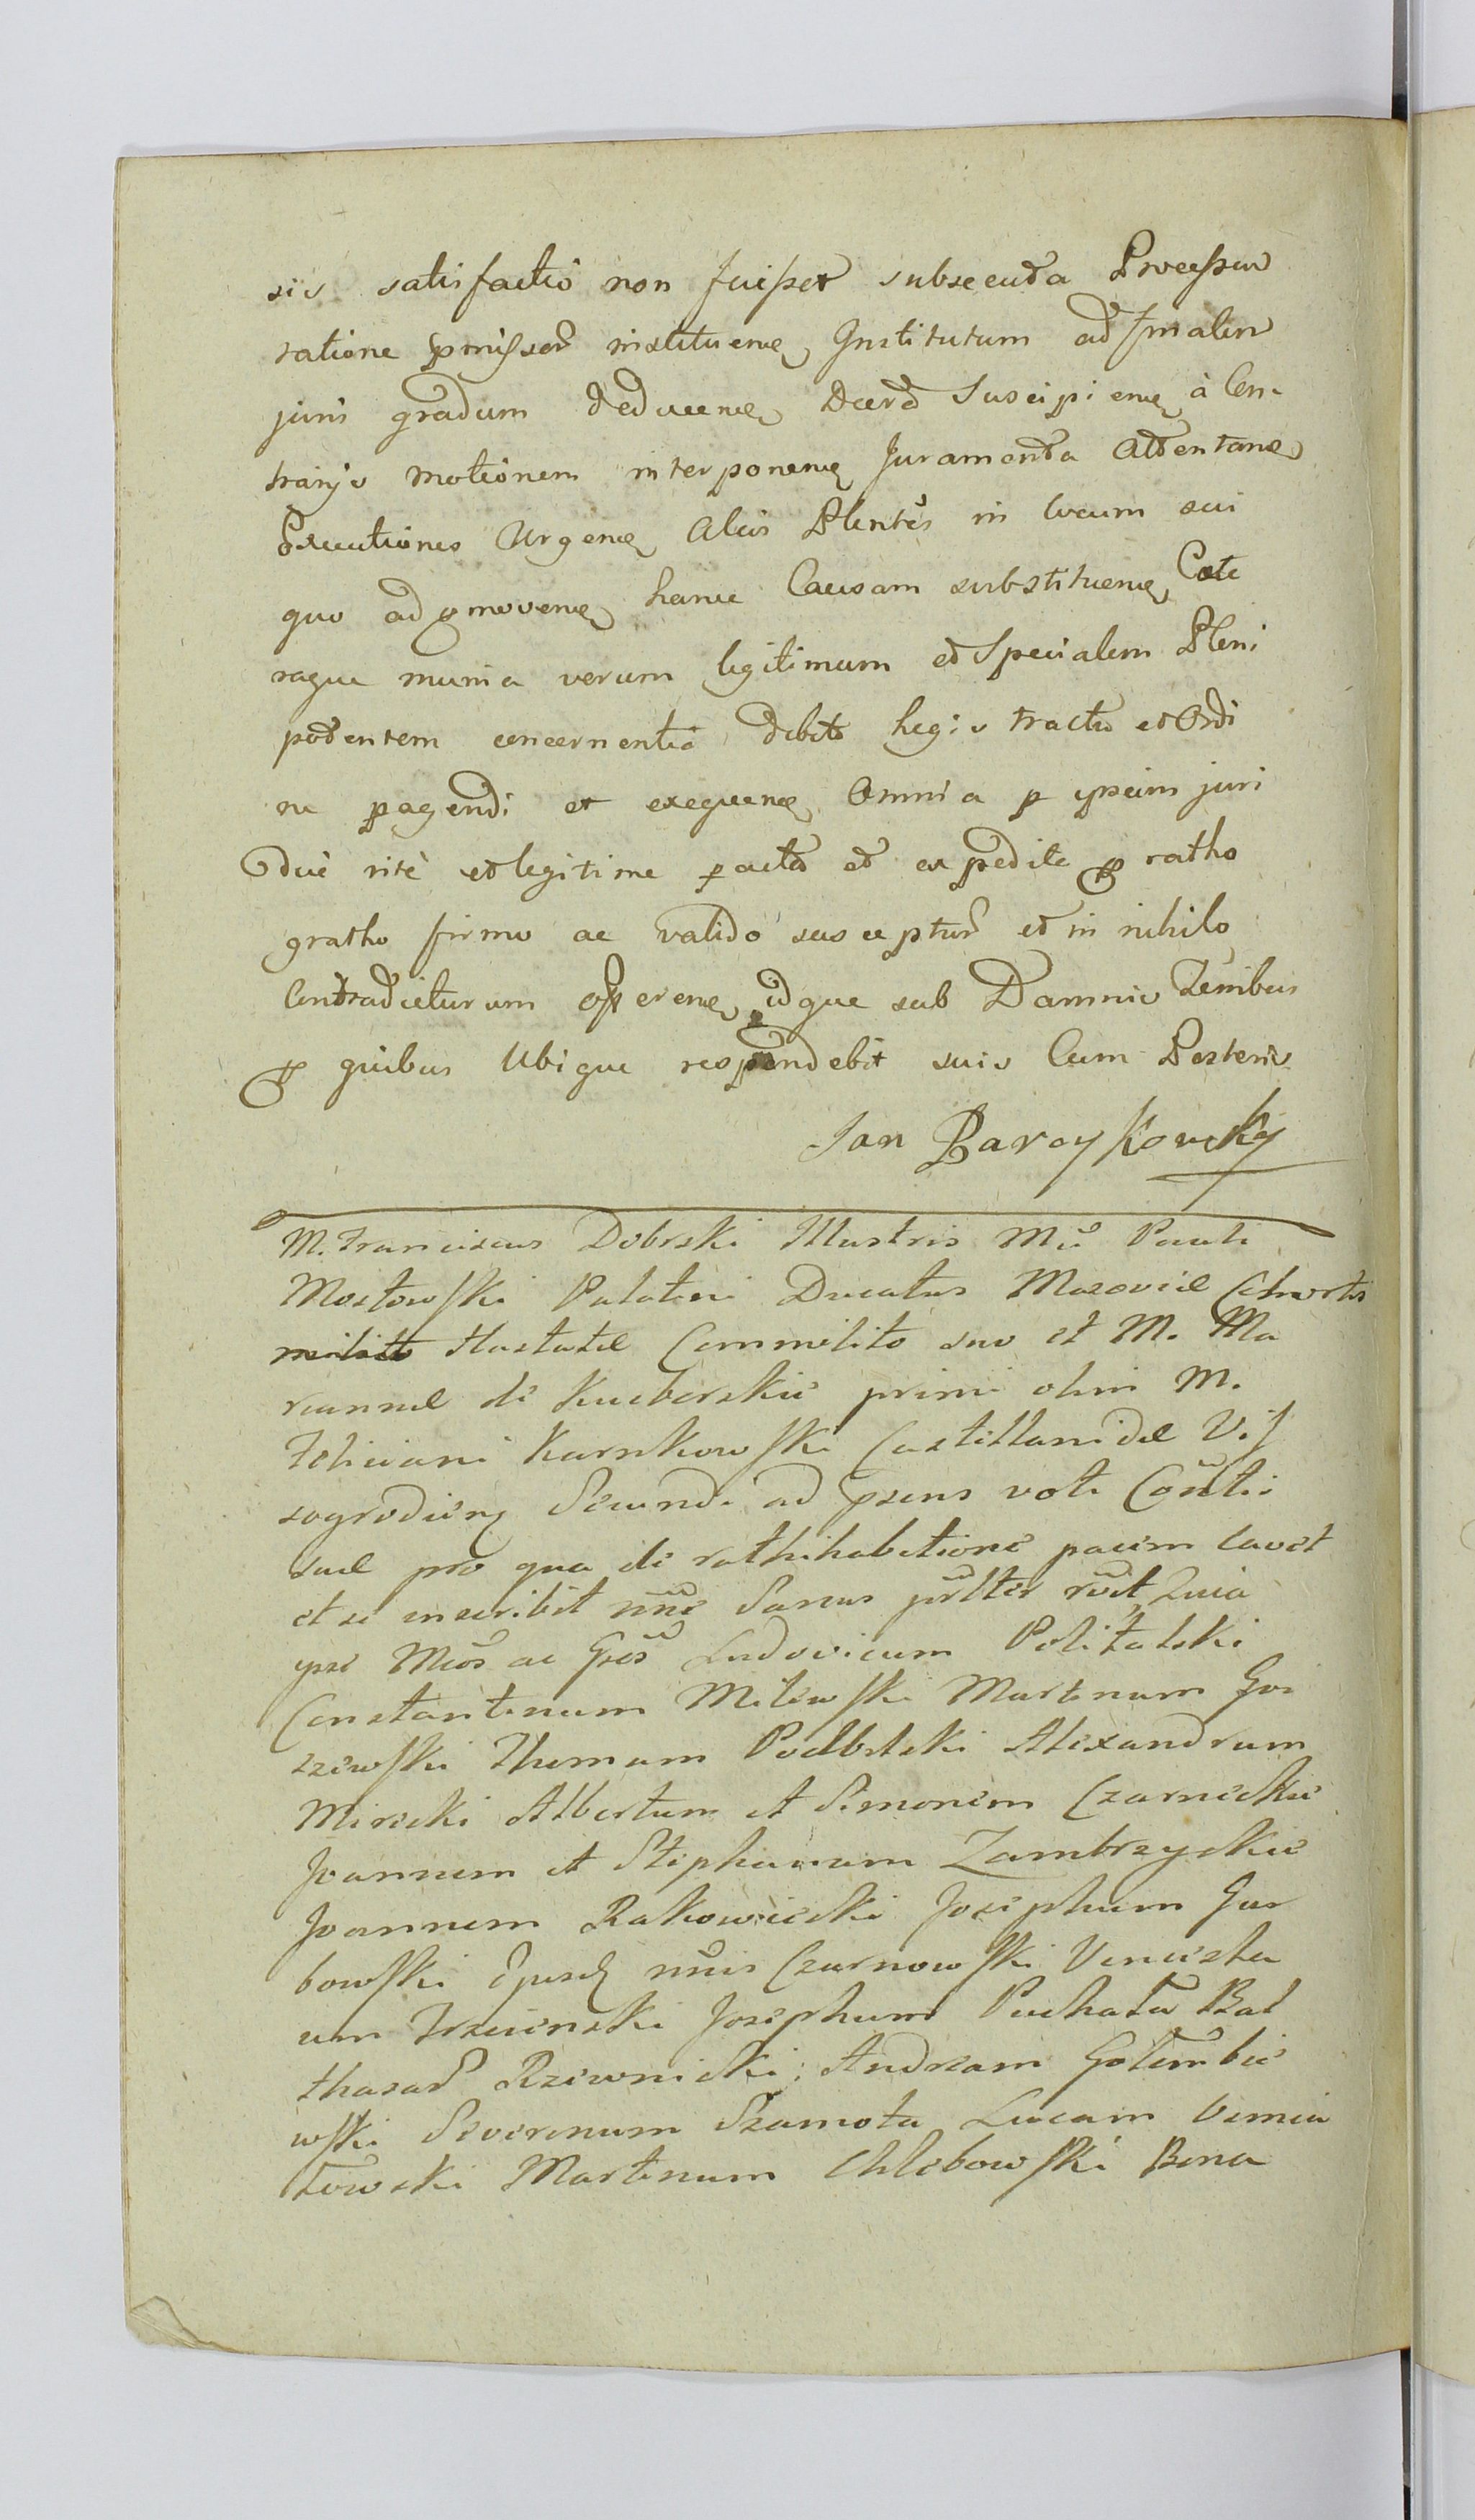 sis satisfactio non fuisset subsecuta Processum
ratione pmissor instituen Institutum ad finalem
juris gradum deducen Decreta Suscipien à Con-
trarijs motionem interponen Juramenta Attentan
Executiones Urgen Alios Plentes in locum sui
quo ad pmoven hanc Causam substituen Cete
raque munia verum legitimum et Specialem Pleni
potentem concernentia debito legis tractu et Ordi
ne pagendi et exequen Omnia p ipsum juri
due rite et legitime pacta et expedita p ratho
gratho firmo ac valido susceptur et in nihilo
Contradicturum asseren, idque sub Damnis Terribus
p quibus Ubique respondebit suis Cum Posteris
Jan Barcykowsky
M. Franciscus Dobrski Illustris Mci Pauli
Mostowski Palatini Ducatus Masoviæ Cohortis
Hastatæ Commilito suo et M. Ma
riannæ de Kucborskie primi olim M.
Feliciani Karnkowski Castellanidæ Vis
sogrodien Secundi ad psens voti Conti
suæ pro qua de rathihabitione pacim cavet
et se inscribit nne Sanus pslter rcit Quia
ipse Mcos ac Gsos Ludovicum Politalski
Constantinum Milewski Martinum Gos
zewski Thomam Podbelski Alexandrum
Mirecki Albertum et Simonem Czarneckie
Joannem et Stephanum Zambrzyckie
Joannem Rakowiecki Josephum Gar
bowski Ejusd nnis Czarnowski Vencesla
um Trzcinski Josephum Puchala Bal
thasar Rzewnicki: Andream Golembie
wski Severinum Szamota Lucam Uemia
towski Martinum Chlebowski Bona